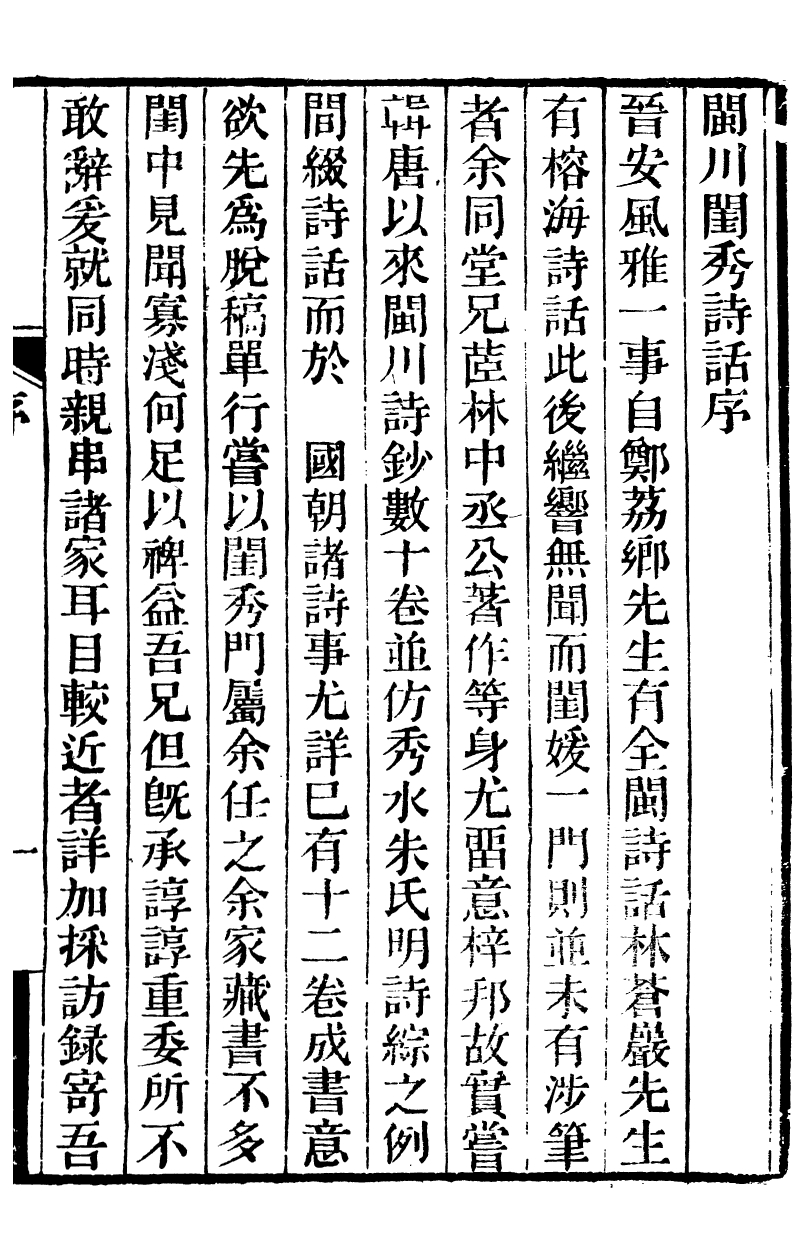 閩川閨秀詩話序
晉安風雅一事自鄭荔鄉先生有全閩詩話林蒼巖先生
有榕海詩話此後繼響無聞而閨媛一門則並未有涉筆
者余同堂兄茝林中丞公著作等身尤畱意梓邦故實嘗
輯唐以來閩川詩鈔數十卷並仿秀水朱氏明詩綜之例
間綴詩話而於　國朝諸詩事尤詳巳有十二卷成書意
欲先爲脫稿單行嘗以閨秀門屬余任之余家藏書不多
閨中見聞寡淺何足以裨益吾兄但旣承諄諄重委所不
敢辭爰就同時親串諸家耳目較近者詳加採訪録寄吾
序
一